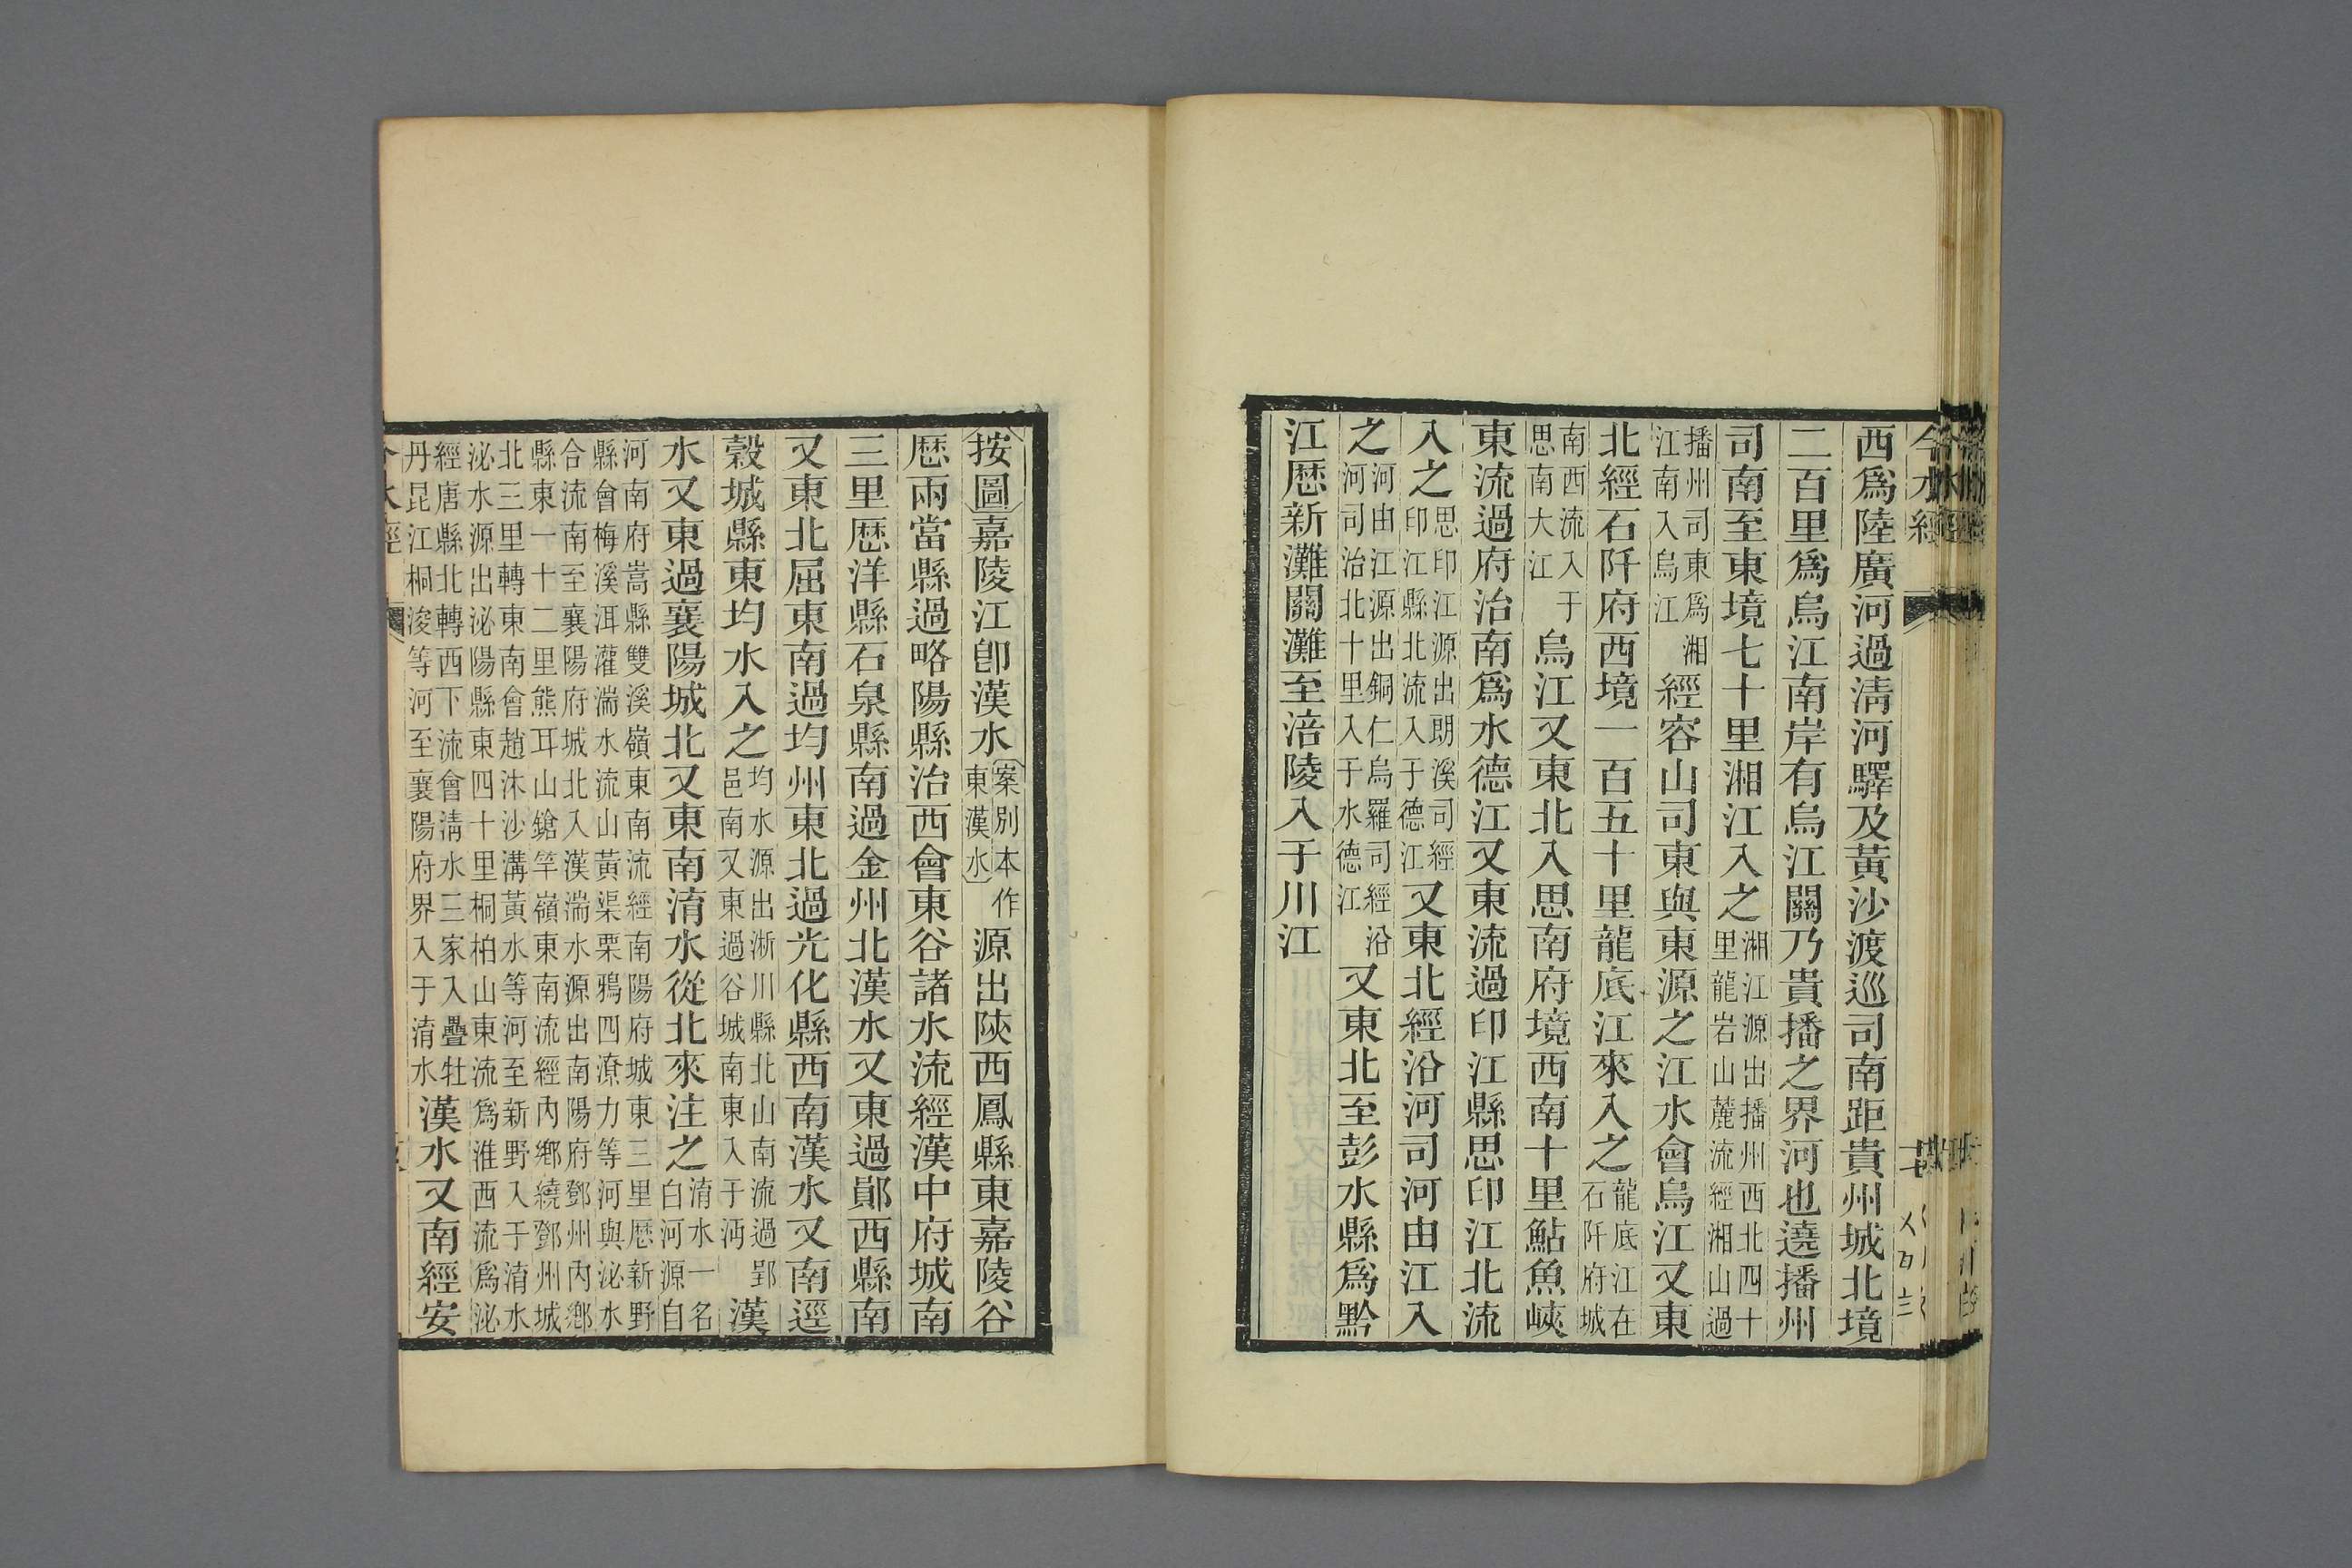 今水經
西爲陸廣河過清河驛及黃沙渡巡司南距貴州城北境
二百里爲烏江南岸有烏江關乃貴播之界河也遶播州
司南至東境七十里湘江入之湘江源出播州西北四十里龍岩山麓流經湘山過
播州司東爲湘江南入烏江經容山司東與東源之江水會烏江又東
北經石阡府西境一百五十里龍底江來入之龍底江在石阡府城
南西流入于思南大江烏江又東北入思南府境西南十里鮎魚峽
東流過府治南爲水德江又東流過印江縣思印江北流
入之思印江源出朗溪司經印江縣北流入于德江又東北經沿河司河由江入
之河由江源出銅仁烏羅司經沿河司治北十里入于水德江又東北至彭水縣爲黔
江歷新灘關灘至涪陵入于川江
按圖嘉陵江卽漢水案別本作東漢水源出陝西鳳縣東嘉陵谷
歷兩當縣過略陽縣治西會東谷諸水流經漢中府城南
三里歷洋縣石泉縣南過金州北漢水又東過鄖西縣南
又東北屈東南過均州東北過光化縣西南漢水又南逕
穀城縣東均水入之均水源出淅川縣北山南流過郢邑南又東過谷城南東入于沔漢
水又東過襄陽城北又東南淯水從北來注之淯水一名白河源自
河南府嵩縣雙溪嶺東南流經南陽府城東三里歷新野縣會梅溪洱灌湍水流山黃渠栗鴉四潦力等河與泌水
合流南至襄陽府城北入漢湍水源出南陽府鄧州內鄉縣東一十二里熊耳山鎗竿嶺東南流經內鄉繞鄧州城
北三里轉東南會趙沐沙溝黃水等河至新野入于淯水泌水源出泌陽縣東四十里桐柏山東流爲淮西流爲泌
經唐縣北轉西下流會清水三家入疊牡丹昆江桐浚等河至襄陽府界入于淯水漢水又南經安